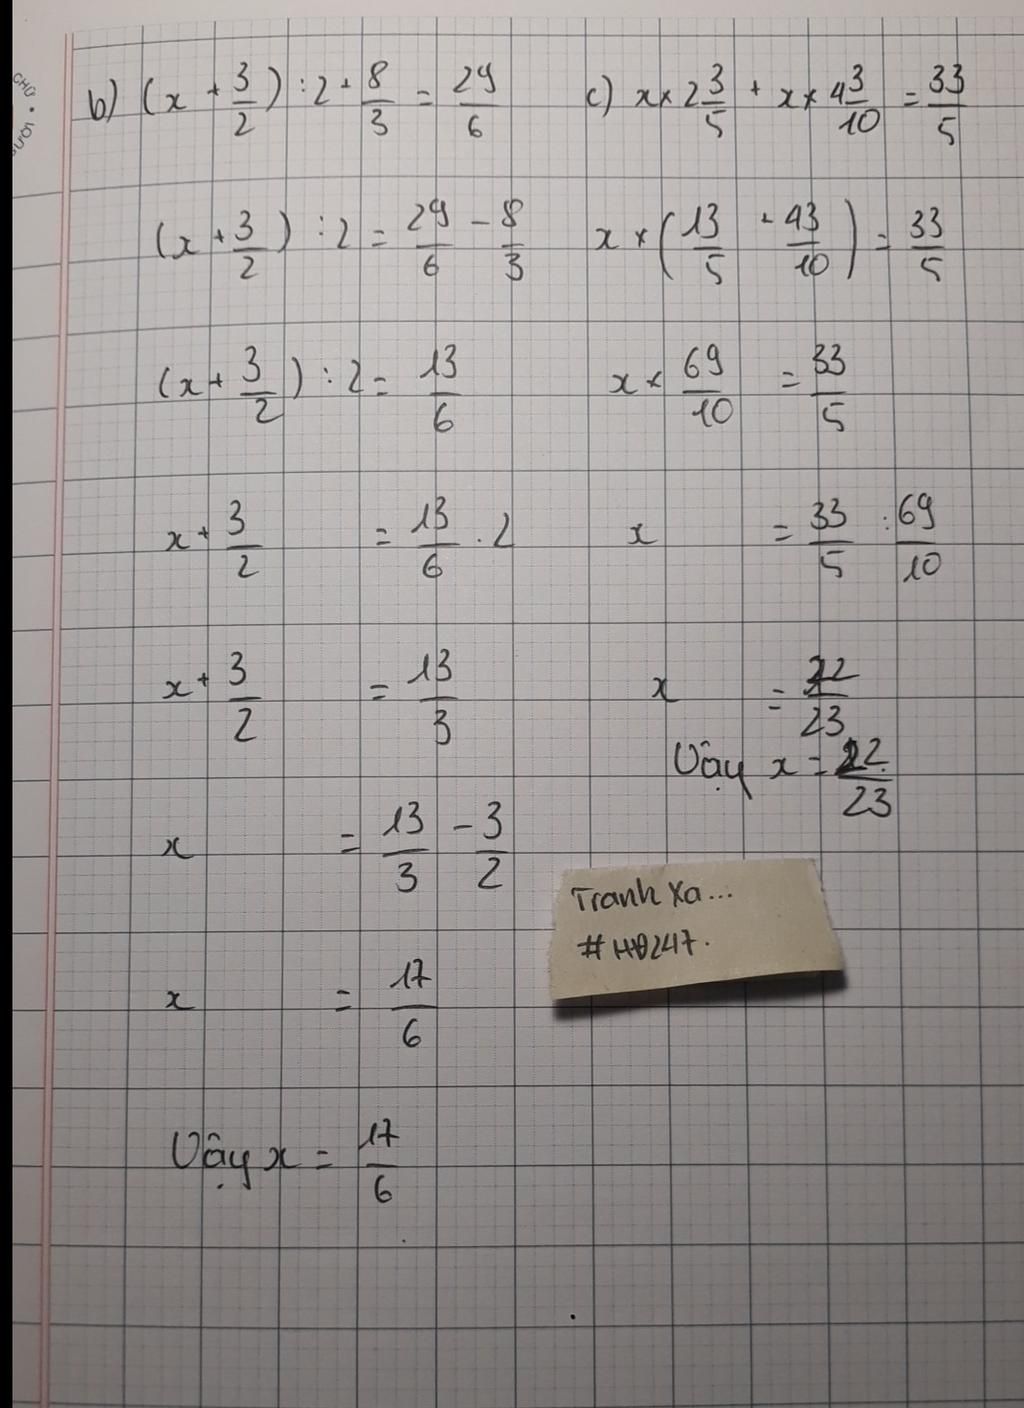 CHỮ
b) (x + 3/2) : 2 + 8/3 = 29/6
(x + 3/2) : 2 = 29/6 - 8/3
(x + 3/2) : 2 = 13/6
x + 3/2 = 13/6 . 2
x + 3/2 = 13/3
x = 13/3 - 3/2
x = 17/6
Vậy x = 17/6
c) x × 2 3/5 + x × 4 3/10 = 33/5
x × (13/5 + 43/10) = 33/5
x × 69/10 = 33/5
x = 33/5 : 69/10
x = 22/23
Vậy x = 22/23
Tranh Xa...
#HĐ247.